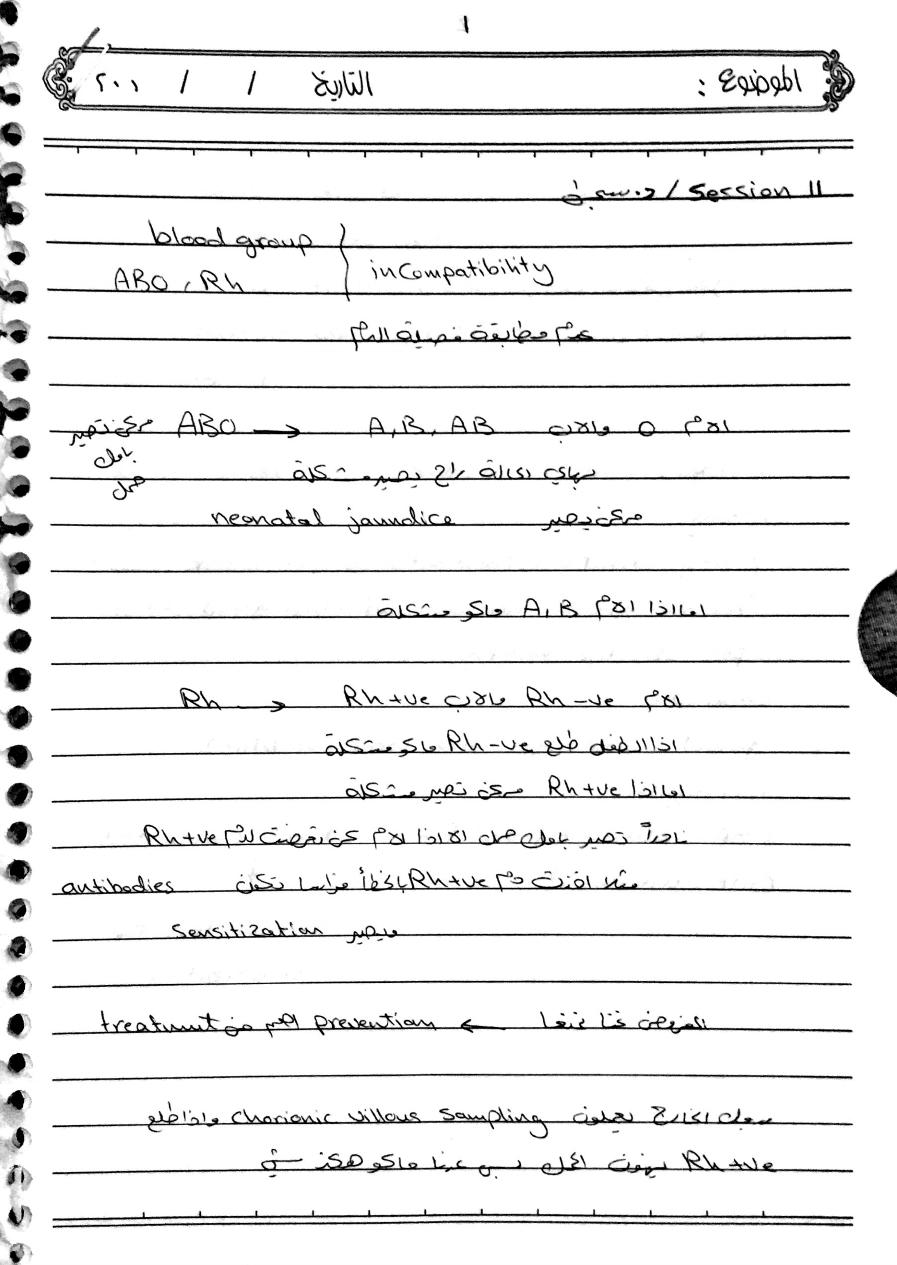 ١
الموضوع : التاريخ / / ٢٠١
Session 11 / د.
blood group
ABO , Rh
incompatibility
عدم مطابقة فصيلة الدم
ABO → الام O والاب A, B, AB
ممكن تصير
باول
حمل
بهاي الحالة راح يصير مشكلة
ممكن يصير neonatal jaundice
اما اذا الام A, B ماكو مشكلة
Rh → الام Rh -ve والاب Rh +ve
اذا الطفل طلع Rh -ve ماكو مشكلة
اما اذا Rh +ve ممكن تصير مشكلة
نادراً تصير باول حمل الا اذا الام تعرضت لدم Rh +ve
مثلا اخذت دم Rh +ve بالخطأ تكون antibodies
ويصير Sensitization
المفروض ← prevention اهم من treatment
بدول الخارج يعملون chorionic villous sampling واذا طلع
Rh +ve ينهون الحمل بس عدنا ماكو هكذ شي